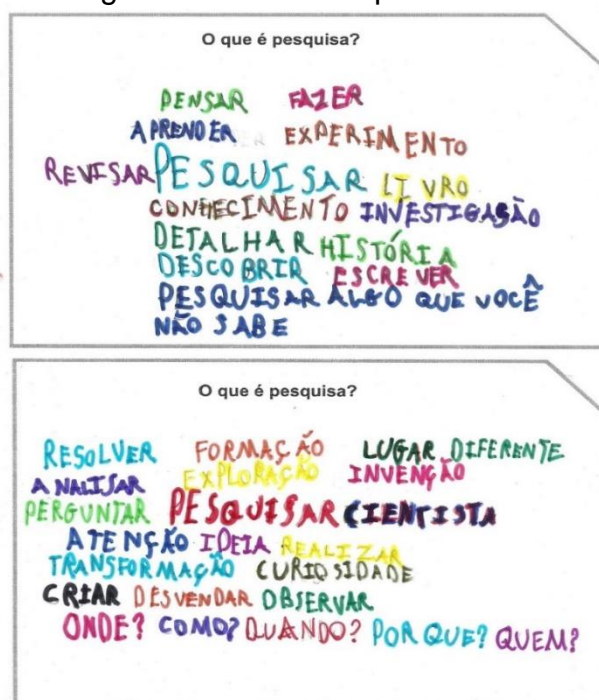 O que é pesquisa?
PENSAR FAZER
APRENDER EXPERIMENTO
REVISAR PESQUISAR LIVRO
CONHECIMENTO INVESTIGASÃO
DETALHAR HISTÓRIA
DESCOBRIR ESCREVER
PESQUISAR ALGO QUE VOCÊ
NÃO SABE
O que é pesquisa?
RESOLVER FORMAÇÃO LUGAR DIFERENTE
ANALISAR EXPLORAÇÃO INVENÇÃO
PERGUNTAR PESQUISAR CIENTISTA
ATENÇÃO IDEIA REALIZAR
TRANSFORMAÇÃO CURIOSIDADE
CRIAR DESVENDAR OBSERVAR
ONDE? COMO? QUANDO? POR QUE? QUEM?